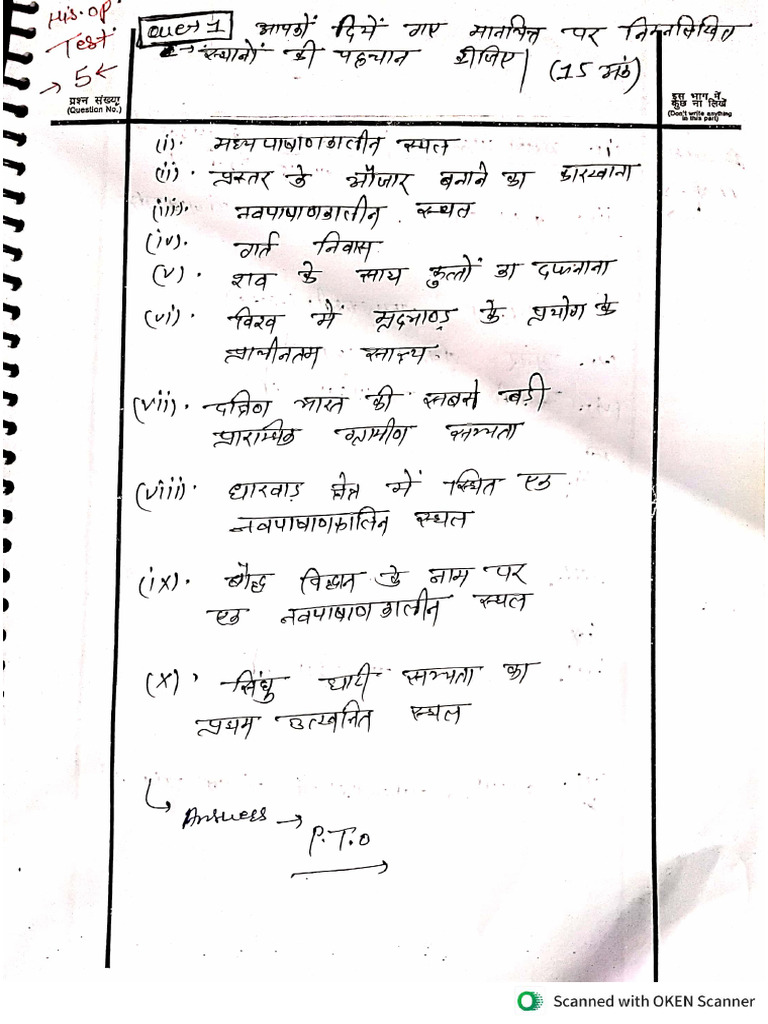 His. Op.
Test
→ 5 ←
Ques 1 आपको दिये गए मानचित्र पर निम्नलिखित
→ स्थानों की पहचान कीजिए। (15 अंक)
प्रश्न संख्या
(Question No.)
इस भाग में
कुछ ना लिखें
(Don't write anything
in this part)
(i). मध्यपाषाणकालीन स्थल
(ii). प्रस्तर के औजार बनाने का कारखाना
(iii). नवपाषाणकालीन स्थल
(iv). गर्त निवास
(v). शव के साथ कुत्तों का दफनाना
(vi). विश्व में मृदभाण्ड के प्रयोग के
प्राचीनतम साक्ष्य
(vii). दक्षिण भारत की सबसे बड़ी
प्रारम्भिक ग्रामीण सभ्यता
(viii). धारवाड़ क्षेत्र में स्थित एक
नवपाषाणकालिन स्थल
(ix). बौद्ध विद्वान के नाम पर
एक नवपाषाणकालीन स्थल
(x). सिंधु घाटी सभ्यता का
प्रथम उत्खनित स्थल
Answers →
P.T.O
Scanned with OKEN Scanner